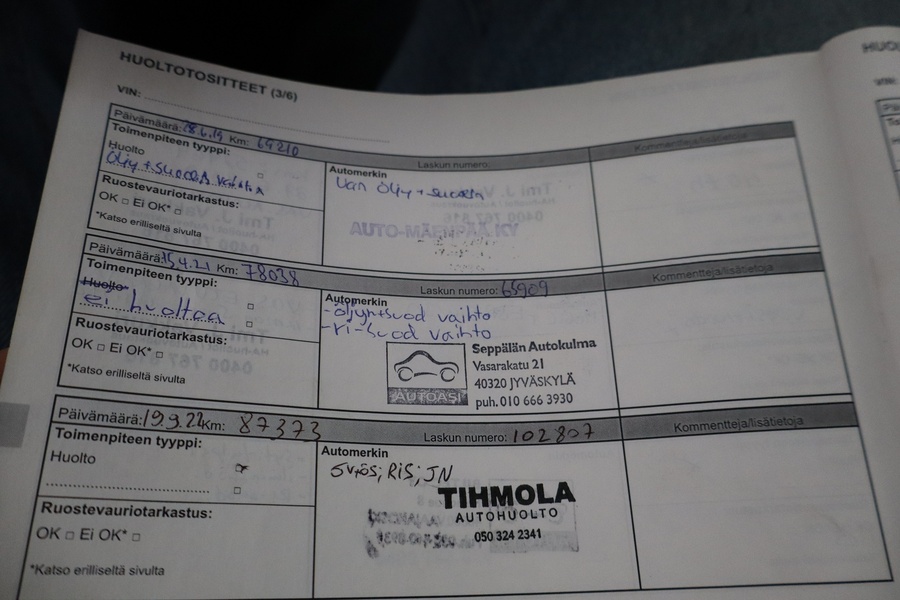 HUOLTOTOSITTEET (3/6)
VIN:
Päivämäärä: 28.6.19 Km: 64210
Laskun numero:
Kommentteja/lisätietoja
Toimenpiteen tyyppi:
Huolto
Öljy + suodas vaihto
Ruostevauriotarkastus:
OK □ Ei OK* □
*Katso erilliseltä sivulta
Automerkin
Van öljy + suodas
AUTO-MÄENPÄÄ KY
Päivämäärä: 15.4.21 Km: 78038
Laskun numero: 65909
Kommentteja/lisätietoja
Toimenpiteen tyyppi:
Huolto
ei huoltoa
Ruostevauriotarkastus:
OK □ Ei OK* □
*Katso erilliseltä sivulta
Automerkin
-öljyn+suod vaihto
-ri-suod vaihto
AUTOASI
Seppälän Autokulma
Vasarakatu 21
40320 JYVÄSKYLÄ
puh. 010 666 3930
Päivämäärä: 19.9.22 Km: 87373
Laskun numero: 102807
Kommentteja/lisätietoja
Toimenpiteen tyyppi:
Huolto
Ruostevauriotarkastus:
OK □ Ei OK* □
*Katso erilliseltä sivulta
Automerkin
RIS; JN
TIHMOLA
AUTOHUOLTO
050 324 2341